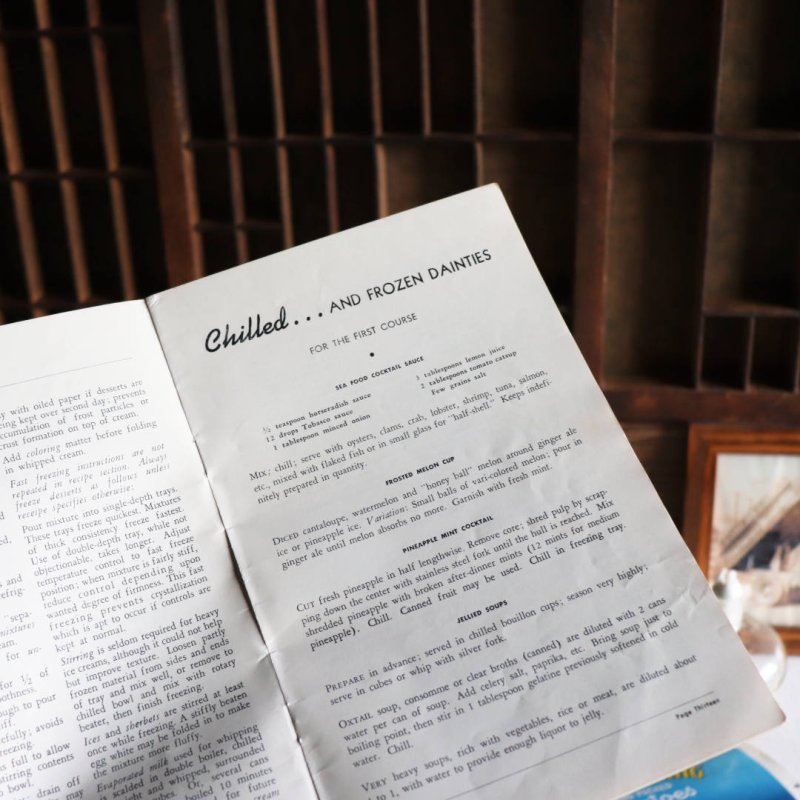 y with oiled paper if desserts are
eing kept over second day; prevents
ccumulation of frost particles or
rust formation on top of cream.
Add coloring matter before folding
in whipped cream.
Fast freezing instructions are not
repeated in recipe section. Always
freeze desserts as follows unless
receipe specifies otherwise:
Pour mixture into single-depth trays.
These trays freeze quickest. Mixtures
of thick consistency freeze fastest.
Use of double-depth tray, while not
objectionable, takes longer. Adjust
temperature control to fast freeze
position; when mixture is fairly stiff,
reduce control depending upon
wanted degree of firmness. This fast
freezing prevents crystallization
which is apt to occur if controls are
kept at normal.
Stirring is seldom required for heavy
ice creams, although it could not help
but improve texture. Loosen partly
frozen material from sides and ends
of tray and mix well, or remove to
chilled bowl and mix with rotary
beater, then finish freezing.
Ices and sherbets are stirred at least
once while freezing. A stiffly beaten
egg white may be folded in to make
the mixture more fluffy.
Evaporated milk used for whipping
is scalded in double boiler, chilled
ght and whipped, surrounded
ubes. Or, several cans
boiled 10 minutes
for future
cream
s and
refrig-
"sepa-
mixture)
for un-
for ½ of
oothness.
ough to pour
iff.
efully; avoids
eezing.
s full to allow
stirring contents
o bowl.
drain off
may
Chilled... AND FROZEN DAINTIES
FOR THE FIRST COURSE
SEA FOOD COCKTAIL SAUCE
½ teaspoon horseradish sauce
12 drops Tobasco sauce
1 tablespoon minced onion
3 tablespoons lemon juice
2 tablespoons tomato catsup
Few grains salt
MIX; chill; serve with oysters, clams, crab, lobster, shrimp, tuna, salmon,
etc., mixed with flaked fish or in small glass for "half-shell." Keeps indefi-
nitely prepared in quantity.
FROSTED MELON CUP
DICED cantaloupe, watermelon and "honey ball" melon around ginger ale
ice or pineapple ice. Variation: Small balls of vari-colored melon; pour in
ginger ale until melon absorbs no more. Garnish with fresh mint.
PINEAPPLE MINT COCKTAIL
CUT fresh pineapple in half lengthwise. Remove core; shred pulp by scrap-
ping down the center with stainless steel fork until the hull is reached. Mix
shredded pineapple with broken after-dinner mints (12 mints for medium
pineapple). Chill. Canned fruit may be used. Chill in freezing tray.
JELLIED SOUPS
PREPARE in advance; served in chilled bouillon cups; season very highly;
serve in cubes or whip with silver fork.
OXTAIL soup, consomme or clear broths (canned) are diluted with 2 cans
water per can of soup. Add celery salt, paprika, etc. Bring soup just to
boiling point, then stir in 1 tablespoon gelatine previously softened in cold
water. Chill.
VERY heavy soups, rich with vegetables, rice or meat, are diluted about
to 1, with water to provide enough liquor to jelly.
Page Thirteen